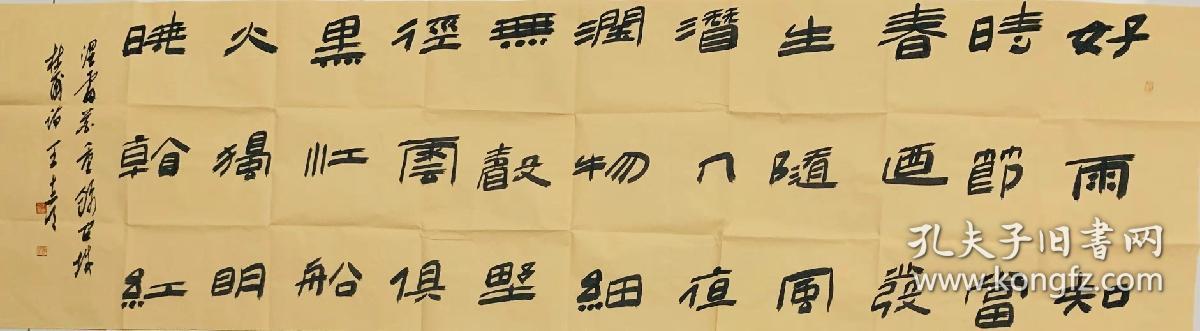 好雨知
時節當
春迺發
生隨風
潛入夜
潤物細
無聲野
徑雲俱
黑江船
火獨明
曉看紅
濕處花重錦官城
杜甫詩 王
孔夫子旧书网
www.kongfz.com